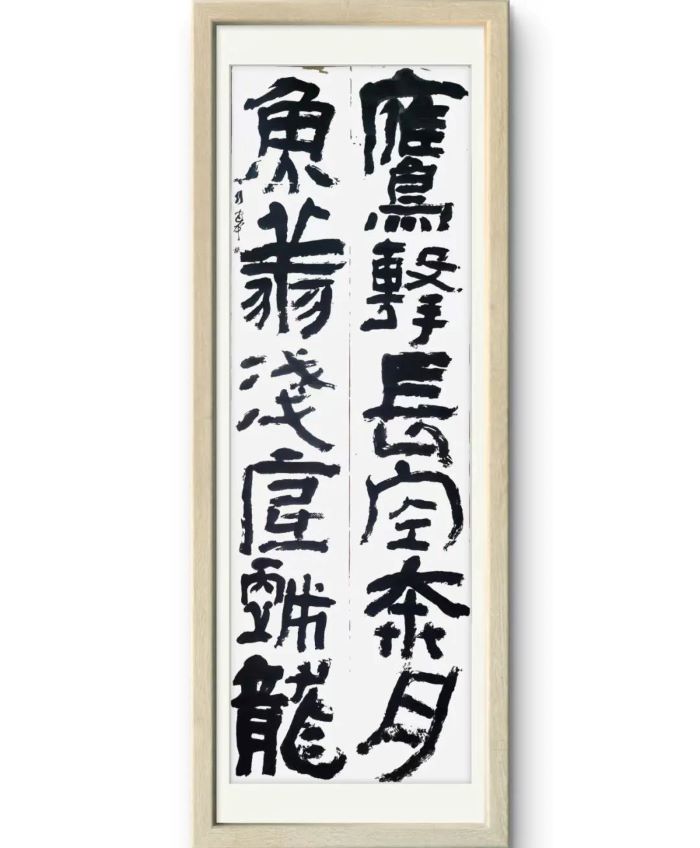 鷹擊長空奔月
魚翔淺底戲龍